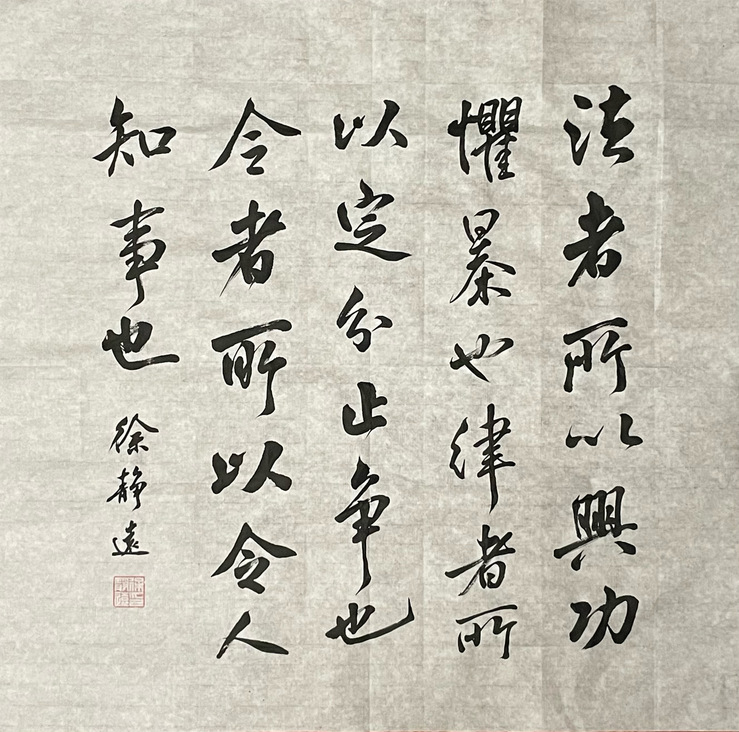 法者所以興功
懼暴也律者所
以定分止争也
令者所以令人
知事也
徐静遠